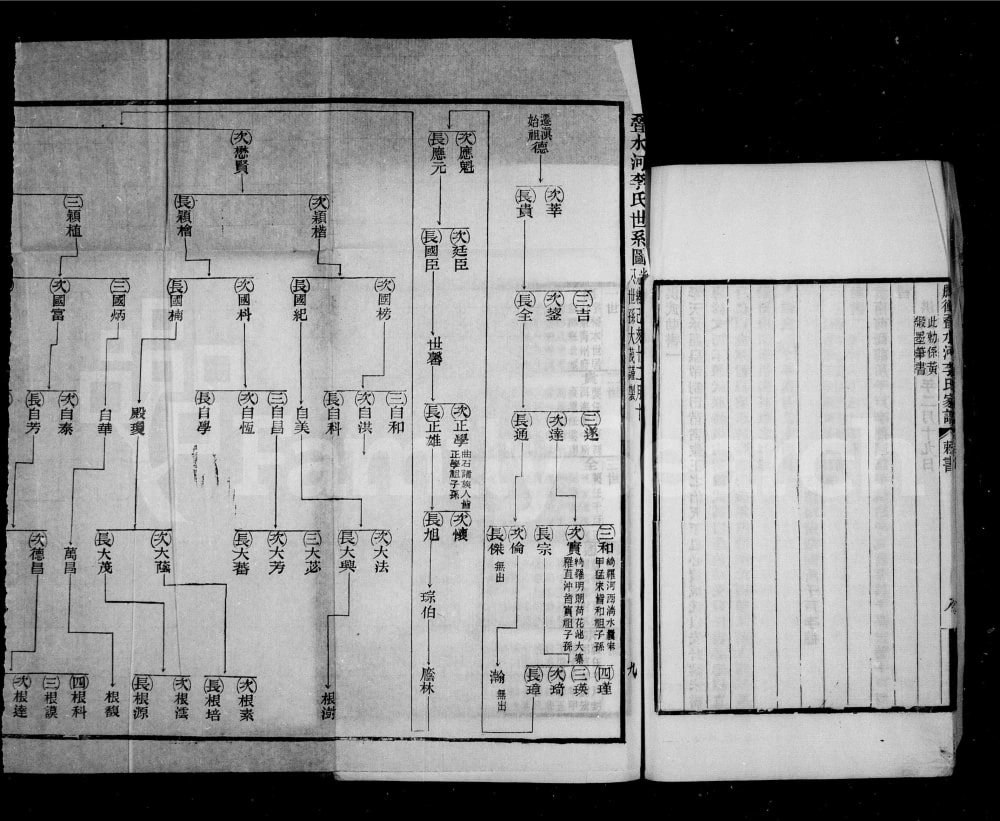 疊水河李氏家譜
敕書
此勅係黃
緞墨筆書
疊水河李氏世系圖
九
遷滇
始祖德
次華
長貴
三吉
次鋆
長全
三遂
次達
長通
三和
次實
長宗
次倫
長傑 無出
四瑾
三瑛
次琦
長璋
瀚 無出
次應魁
長應元
次廷臣
長國臣
世馨
次正學 曲石諸族人皆
正學祖子孫
長正雄
次懷
長旭
琮伯
應林
次懋賢
次穎楷
長穎檜
三穎植
次國榜
長國紀
次國科
長國楠
三國炳
次國富
三自和
次自淇
長自科
自美
三自昌
次自恆
長自學
殿瓊
自華
次自泰
長自芳
次大法
長大興
三大苾
次大芳
長大蕃
次大蔭
長大茂
萬昌
次德昌
根澍
次根素
長根培
次根澐
長根源
根馥
四根科
三根謨
次根逵